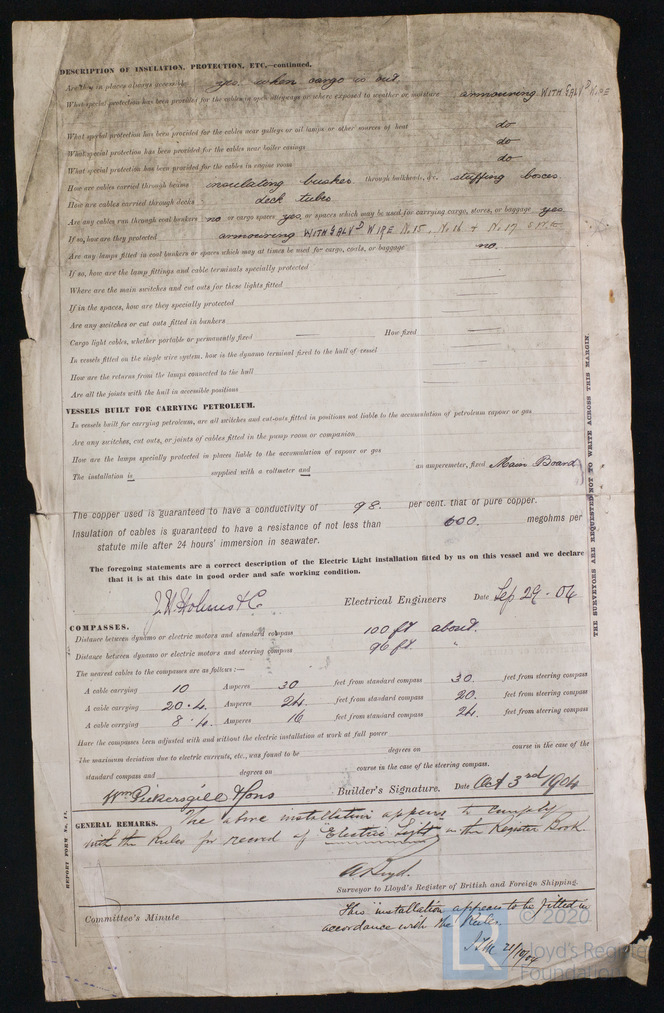 DESCRIPTION OF INSULATION, PROTECTION, ETC.—continued.
Are they in places always accessible yes when cargo is out.
What special protection has been provided for the cables in open alleyways or where exposed to weather or moisture armouring WITH GALVD WIRE
What special protection has been provided for the cables near galleys or oil lamps or other sources of heat do
What special protection has been provided for the cables near boiler casings do
What special protection has been provided for the cables in engine room do
How are cables carried through beams insulating bushes through bulkheads, &c. stuffing boxes.
How are cables carried through decks deck tubes
Are any cables run through coal bunkers no or cargo spaces yes or spaces which may be used for carrying cargo, stores, or baggage yes
If so, how are they protected armouring WITH GALVD WIRE N. 15, No 16 + N. 17
Are any lamps fitted in coal bunkers or spaces which may at times be used for cargo, coals, or baggage no.
If so, how are the lamp fittings and cable terminals specially protected
Where are the main switches and cut outs for these lights fitted
If in the spaces, how are they specially protected
Are any switches or cut outs fitted in bunkers
Cargo light cables, whether portable or permanently fixed How fixed
In vessels fitted on the single wire system, how is the dynamo terminal fixed to the hull of vessel
How are the returns from the lamps connected to the hull
Are all the joints with the hull in accessible positions
VESSELS BUILT FOR CARRYING PETROLEUM.
In vessels built for carrying petroleum, are all switches and cut-outs fitted in positions not liable to the accumulation of petroleum vapour or gas
Are any switches, cut outs, or joints of cables fitted in the pump room or companion
How are the lamps specially protected in places liable to the accumulation of vapour or gas
The installation is supplied with a voltmeter and an amperemeter, fixed Main Board
The copper used is guaranteed to have a conductivity of 98. per cent. that of pure copper.
Insulation of cables is guaranteed to have a resistance of not less than 600. megohms per
statute mile after 24 hours' immersion in seawater.
The foregoing statements are a correct description of the Electric Light installation fitted by us on this vessel and we declare
that it is at this date in good order and safe working condition.
J H Holmes & Co Electrical Engineers Date Sep 29 - 04
COMPASSES.
Distance between dynamo or electric motors and standard compass 100 ft about.
Distance between dynamo or electric motors and steering compass 96 ft. "
The nearest cables to the compasses are as follows:—
A cable carrying 10 Amperes 30 feet from standard compass 30. feet from steering compass
A cable carrying 20.4. Amperes 24. feet from standard compass 20. feet from steering compass
A cable carrying 8.4. Amperes 16 feet from standard compass 24. feet from steering compass
Have the compasses been adjusted with and without the electric installation at work at full power
The maximum deviation due to electric currents, etc., was found to be degrees on course in the case of the
standard compass and degrees on course in the case of the steering compass.
Wm Pickersgill & Sons Builder's Signature. Date Oct 3rd 1904
GENERAL REMARKS. The above installation appears to comply
with the Rules for record of "Electric Light" in the Register Book.
A Boyd.
Surveyor to Lloyd's Register of British and Foreign Shipping.
Committee's Minute
This installation appears to be fitted in
accordance with the Rules.
21/10/04
THE SURVEYORS ARE REQUESTED NOT TO WRITE ACROSS THIS MARGIN.
REPORT FORM No. 11.
© 2020
LR Lloyd's Register
Foundation